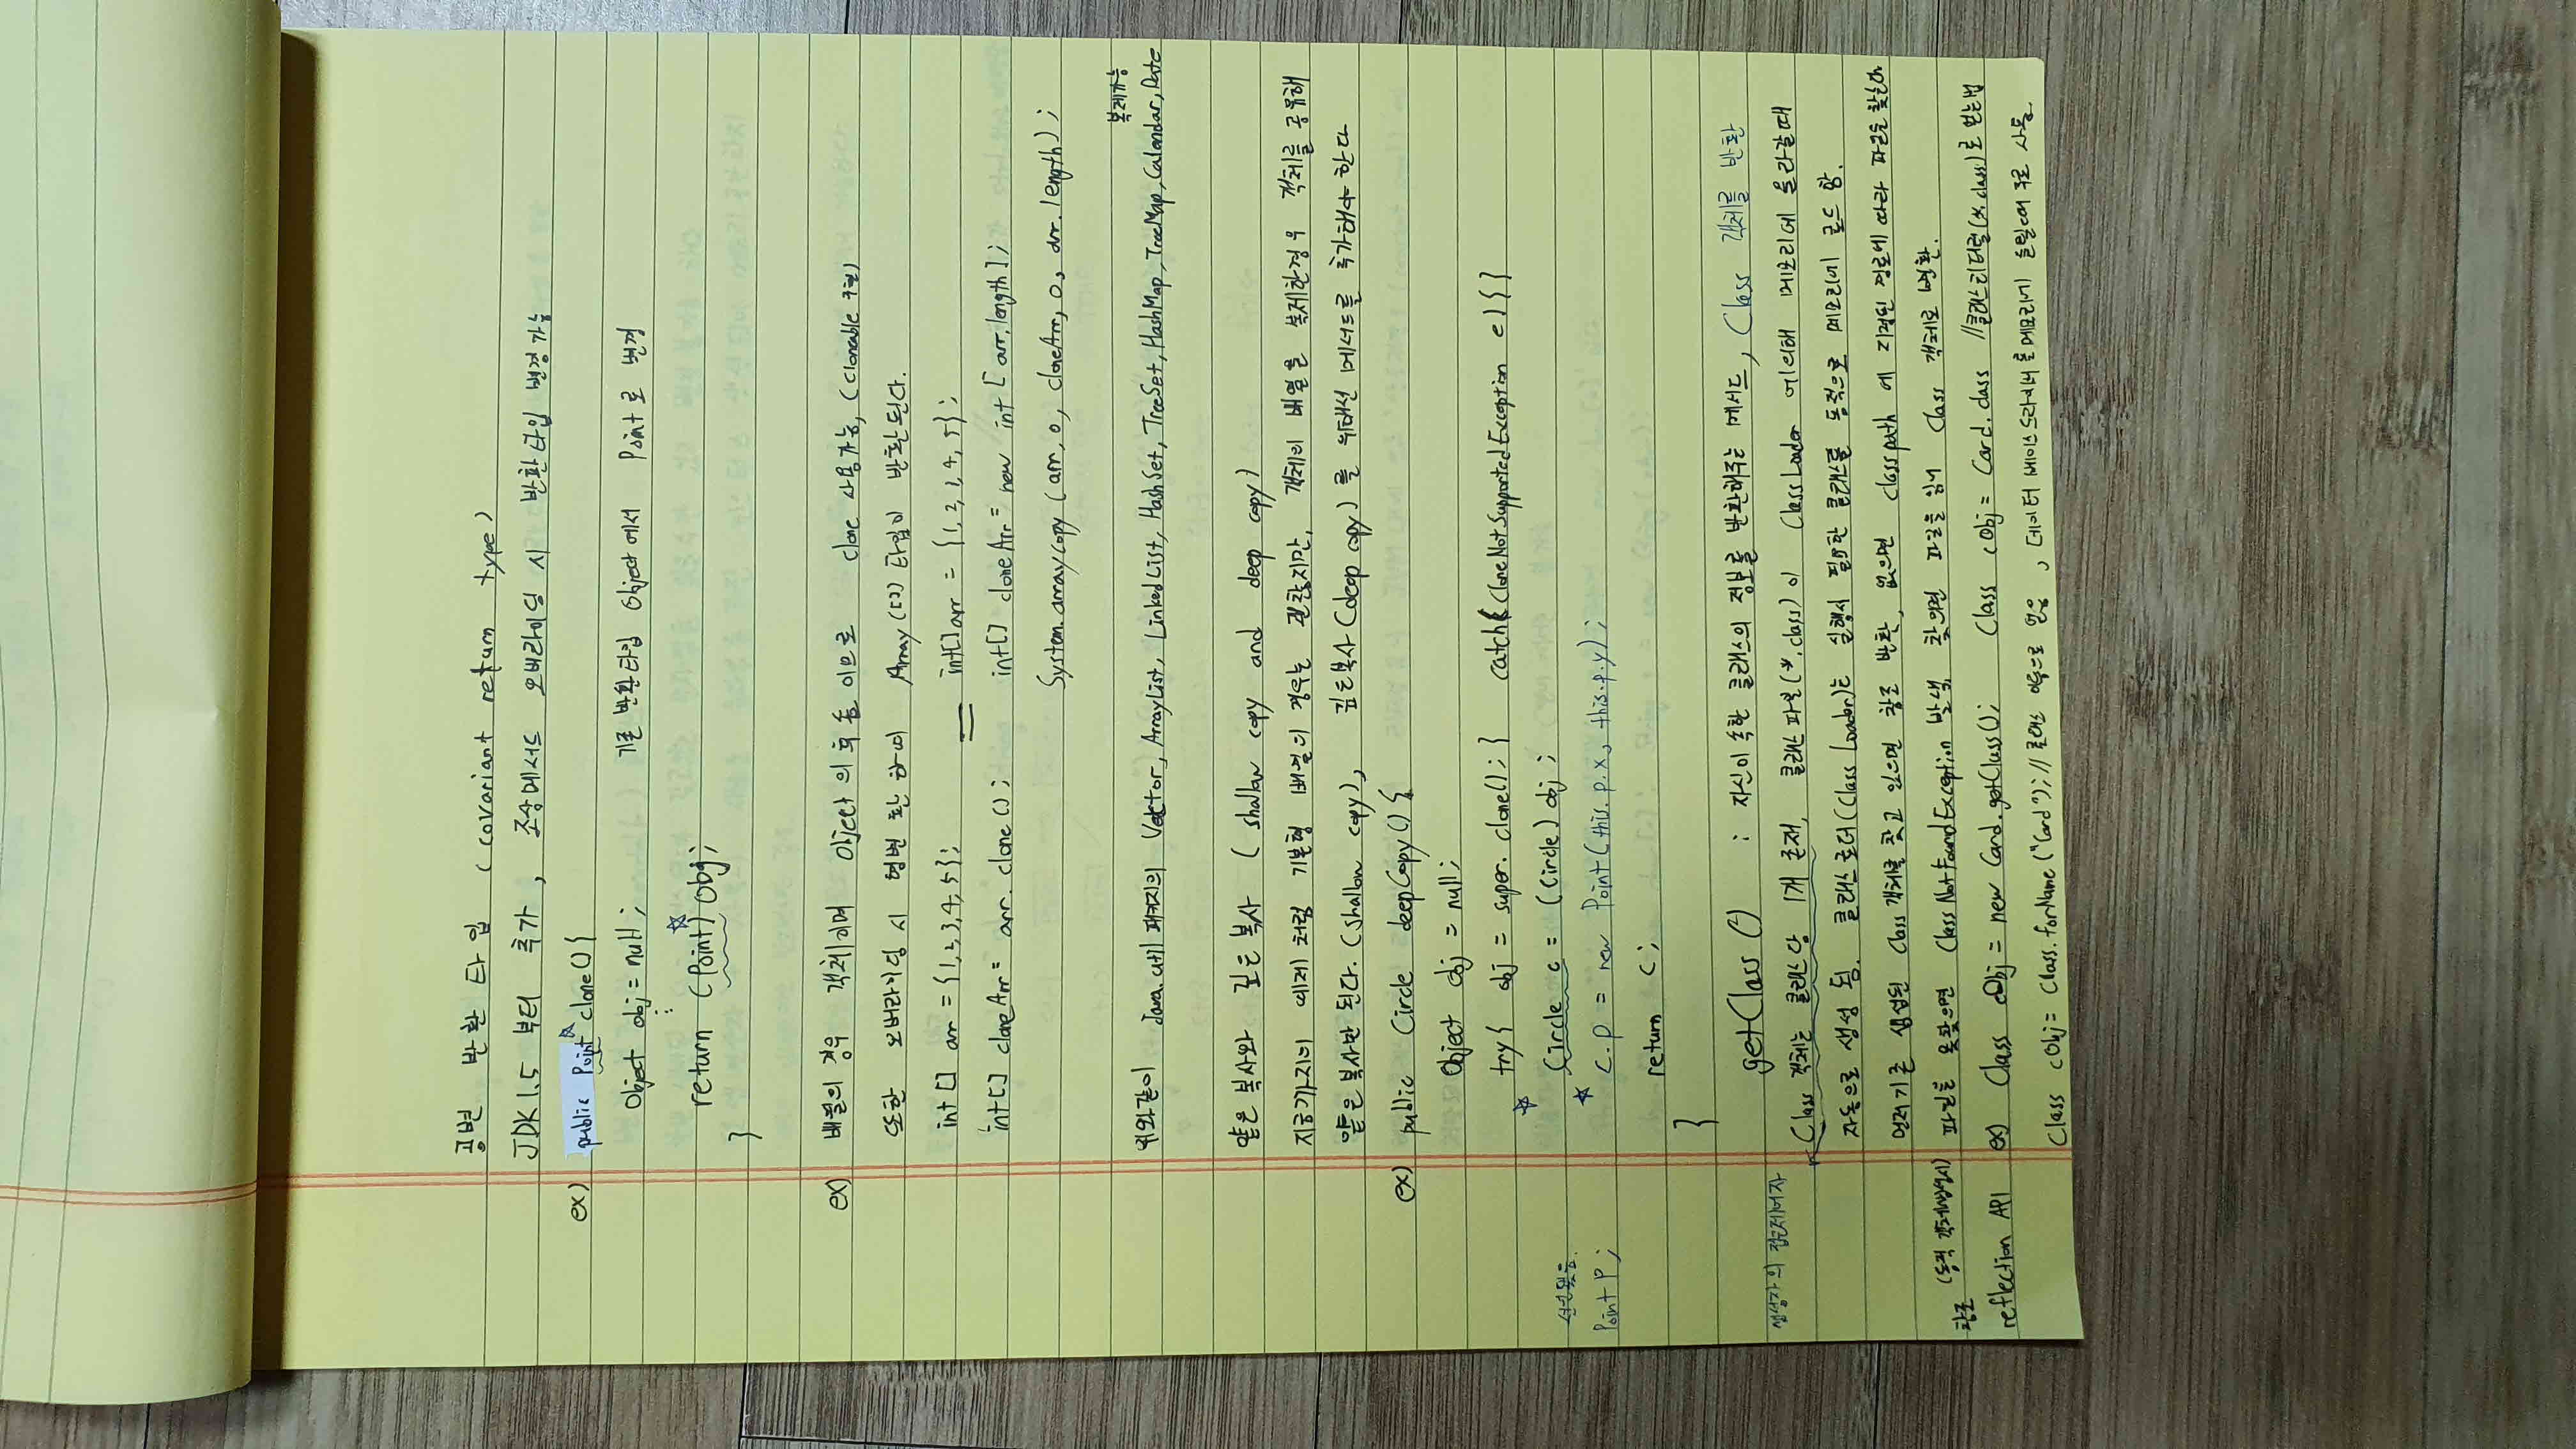 공변 반환 타입 (covariant return type)
JDK 1.5 부터 추가, 조상메서드 오버라이딩 시 반환타입 변경가능
ex) public Point clone(){
Object obj = null; 기존 반환타입 Object에서 Point로 변경
⋮
return (Point) obj;
}
ex) 배열의 경우 객체이며 Object의 후손 이므로 clone 사용가능, (Cloneable 구현)
또한 오버라이딩 시 형변환하여 Array([]) 타입이 반환된다.
int [] arr = {1,2,3,4,5}; = int[] arr = {1,2,3,4,5};
int[] cloneArr = arr.clone(); int[] cloneArr = new int [arr.length];
System.arraycopy (arr, 0, cloneArr, 0, arr.length);
복제가능
위와같이 Java.util 패키지의 Vector, ArrayList, LinkedList, HashSet, TreeSet, HashMap, TreeMap, Calendar, Date
얕은 복사와 깊은 복사 (shallow copy and deep copy)
지금까지의 예제처럼 기본형 배열의 경우는 괜찮지만, 객체의 배열을 복제한경우 객체를 공유해
얕은 복사만 된다. (shallow copy), 깊은복사(deep copy)를 위해선 메서드를 추가해야 한다
ex) public Circle deepCopy(){
Object obj = null;
try{ obj = super.clone(); } catch(CloneNotSupportedException e){}
Circle c = (Circle) obj;
c.p = new Point(this.p.x, this.p.y);
Point P;
return c;
}
getClass() : 자신이 속한 클래스의 정보를 반환해주는 메서드, Class 객체를 반환
생성자의 접근제어자
Class 객체는 클래스당 1개 존재, 클래스 파일(*.class)이 ClassLoader 에의해 메모리에 올라갈때
자동으로 생성 됨. 클래스로더(Class Loader)는 실행시 필요한 클래스를 동적으로 메모리에 로드 함.
먼저 기존 생성된 Class객체를 찾고 있으면 참조 반환, 없으면 classpath 에 지정된 경로에 따라 파일을
(동적 객체생성시) 파일을 못찾으면 ClassNotFoundException 발생, 찾으면 파일을 읽어 Class 객체로 변환.
참조
reflection API ex) Class cObj = new Card.getClass(); Class cObj = Card.class //클래스리터럴(*.class)로 얻는법
Class cObj = Class.forName("Card"); // 클래스 이름으로 얻음, 데이터 베이스드라이버를 메모리에 올릴때 주로 사용